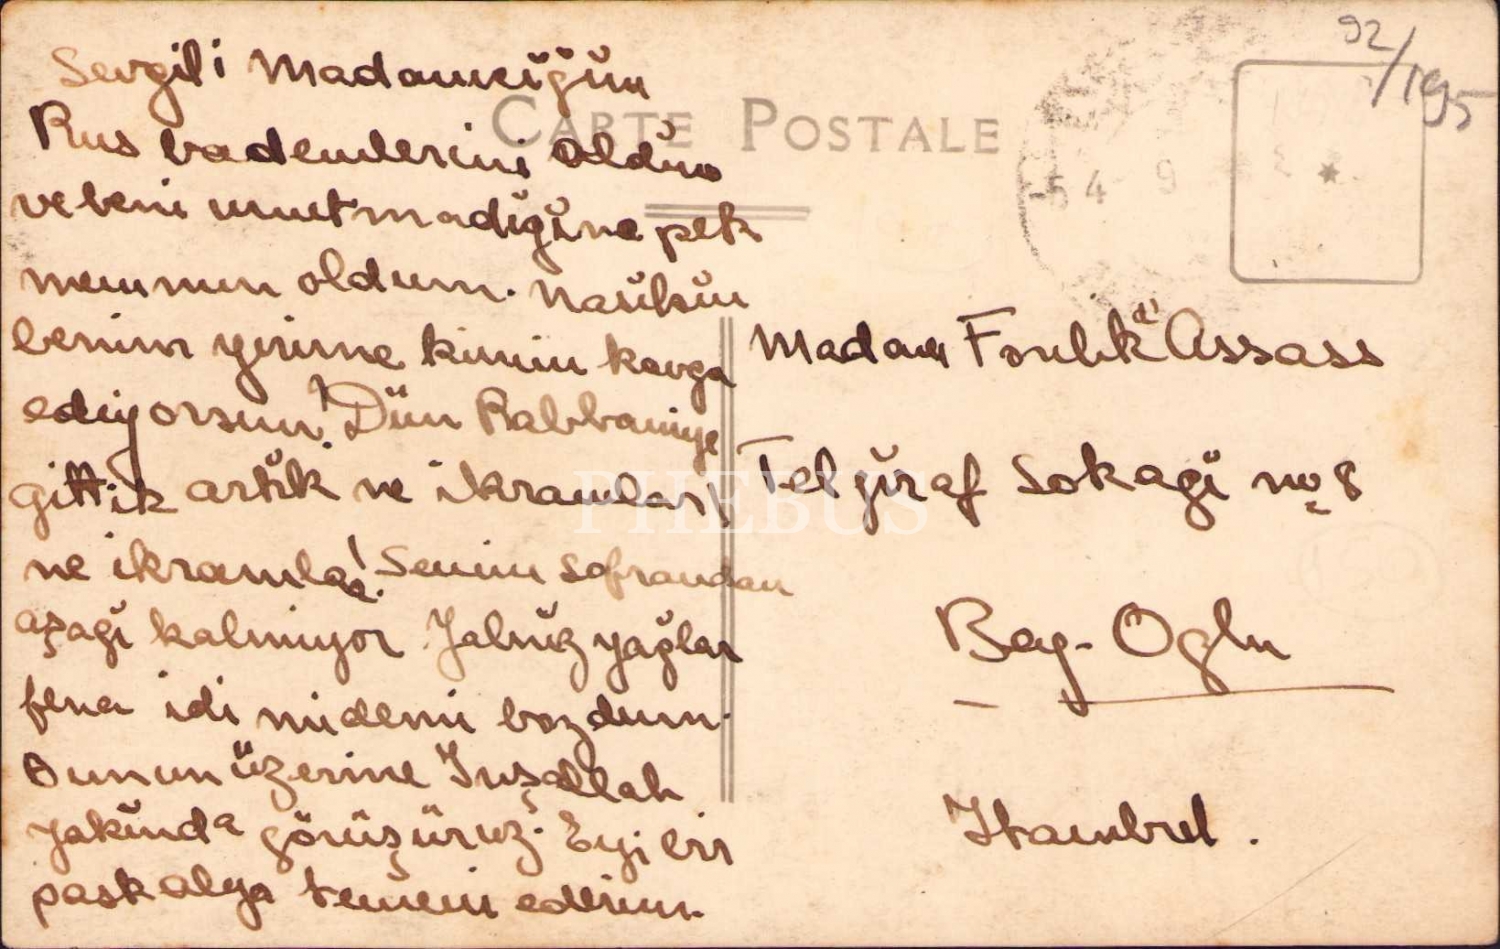 92/195
CARTE POSTALE
Sevgili Madamcığım
Rus bademlerini aldım
ve beni unutmadığına pek
memnun oldum. Nasılsın
benim yerime kimin kavga
ediyorsun! Dün Rabbaniye
gittik artık ne ikramlar!
ne ikramlar! Senin sofrandan
aşağı kalmıyor Yalnız yağlar
fena idi midemi bozdum.
Bunun üzerine Inşallah
yakında görüşürüz. Eyi bir
paskalya temeni ederim.
54 9
Madam Assass
Telğıraf Sokagi no 8
Bey-Oglu
Istambul.
PHEBUS